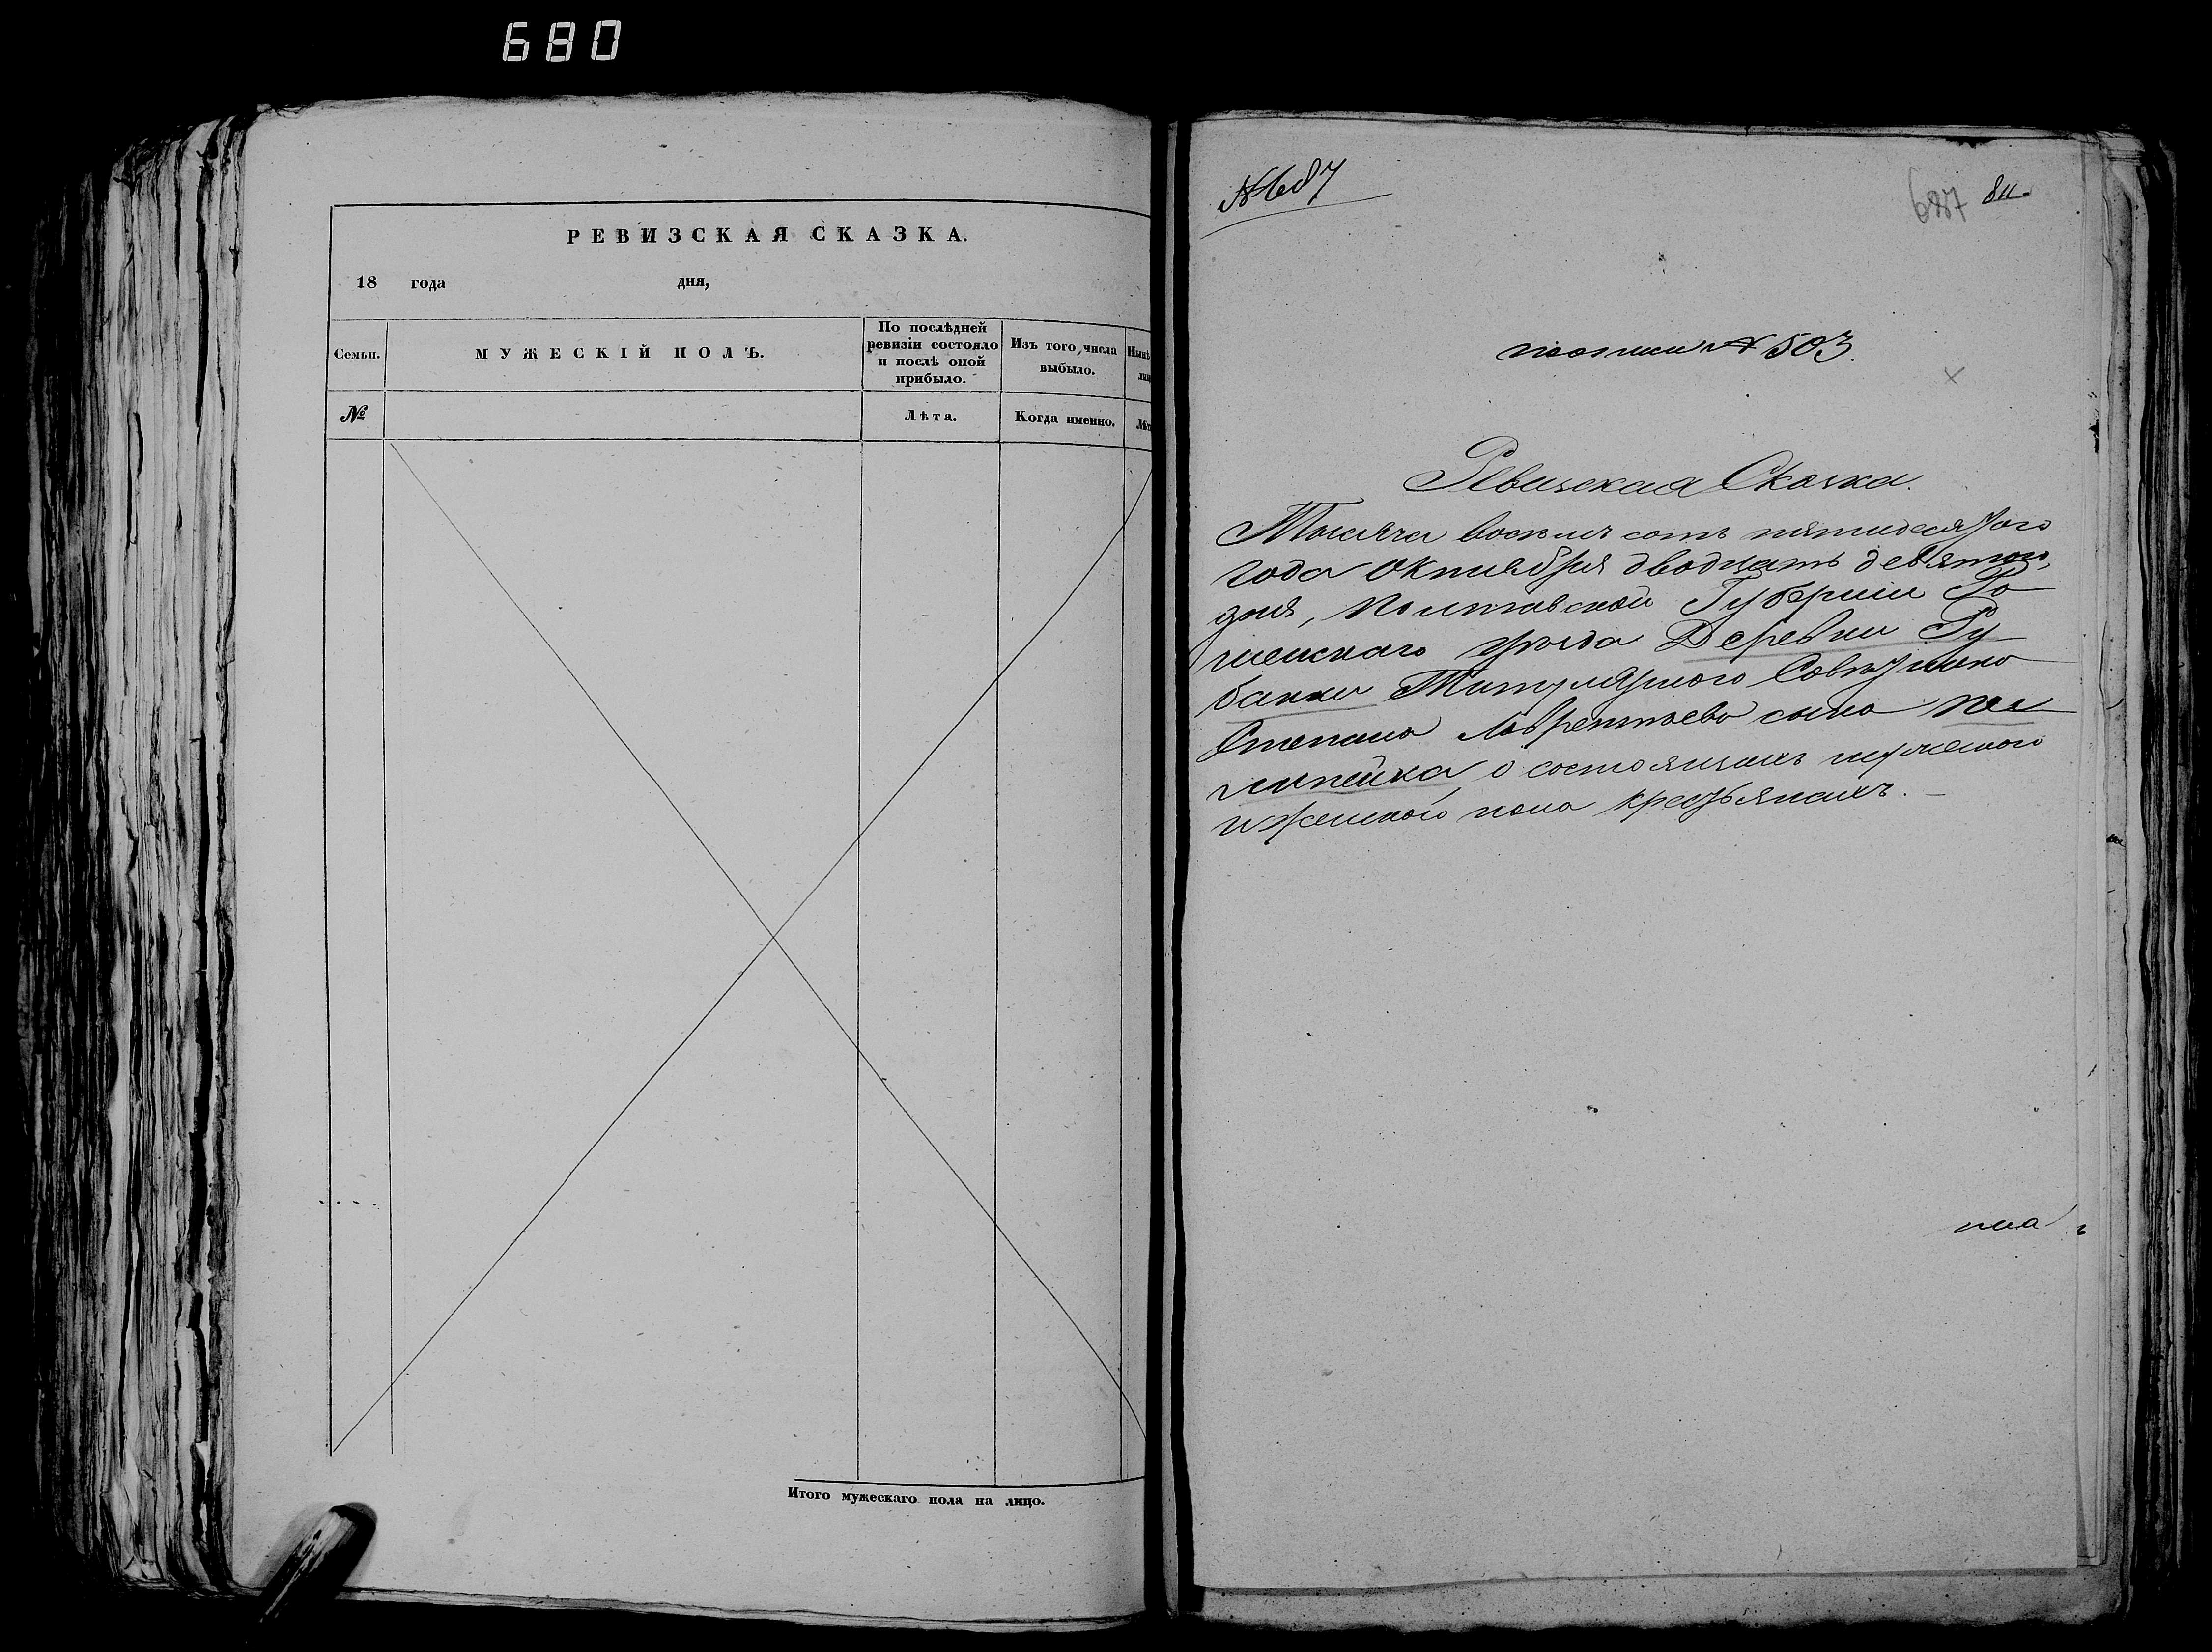 680
РЕВИЗСКАЯ СКАЗКА.
18 года дня,
Семьи.
МУЖЕСКІЙ ПОЛЪ.
По послѣдней
ревизіи состояло
и послѣ оной
прибыло.
Изъ того числа
выбыло.
№
Лѣта.
Когда именно.
Итого мужескаго пола на лицо.
№ 687
687 811.
по описи № 503.
Ревизская Сказка.
Тысяча восемь сотъ пятидесятого
года Октября двадцать девятого
дня, Полтавской Губерніи Ро
менскаго уѣзда Деревни Ру
банки Титулярного Совѣтника
Степана Лаврентьева сына
о состоящихъ мужеского
и женского пола крестьянахъ.